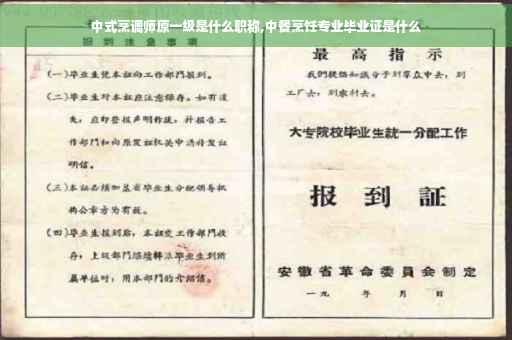 中式烹调师原一级是什么职称,中餐烹饪专业毕业证是什么
报到注意事项
(一)毕业生凭本证向工作部門报到。
(二)毕业生对本证应注意保存。如有遺
失,应即登报声明作废,并报告工
作部門和向原发证机关申請补发证
明信。
(三)本证必須加盖省毕业生分配領导机
构公章方为有效。
(四)毕业生报到后,本证交工作部門收
存;上級部門
屬单位时,用本部門的介紹信。
最高指示
我們提倡知識分子到羣众中去,到
工厂去,到农村去。
大专院校毕业生統一分配工作
报到証
安徽省革命委員会制定
一九 年 月 日